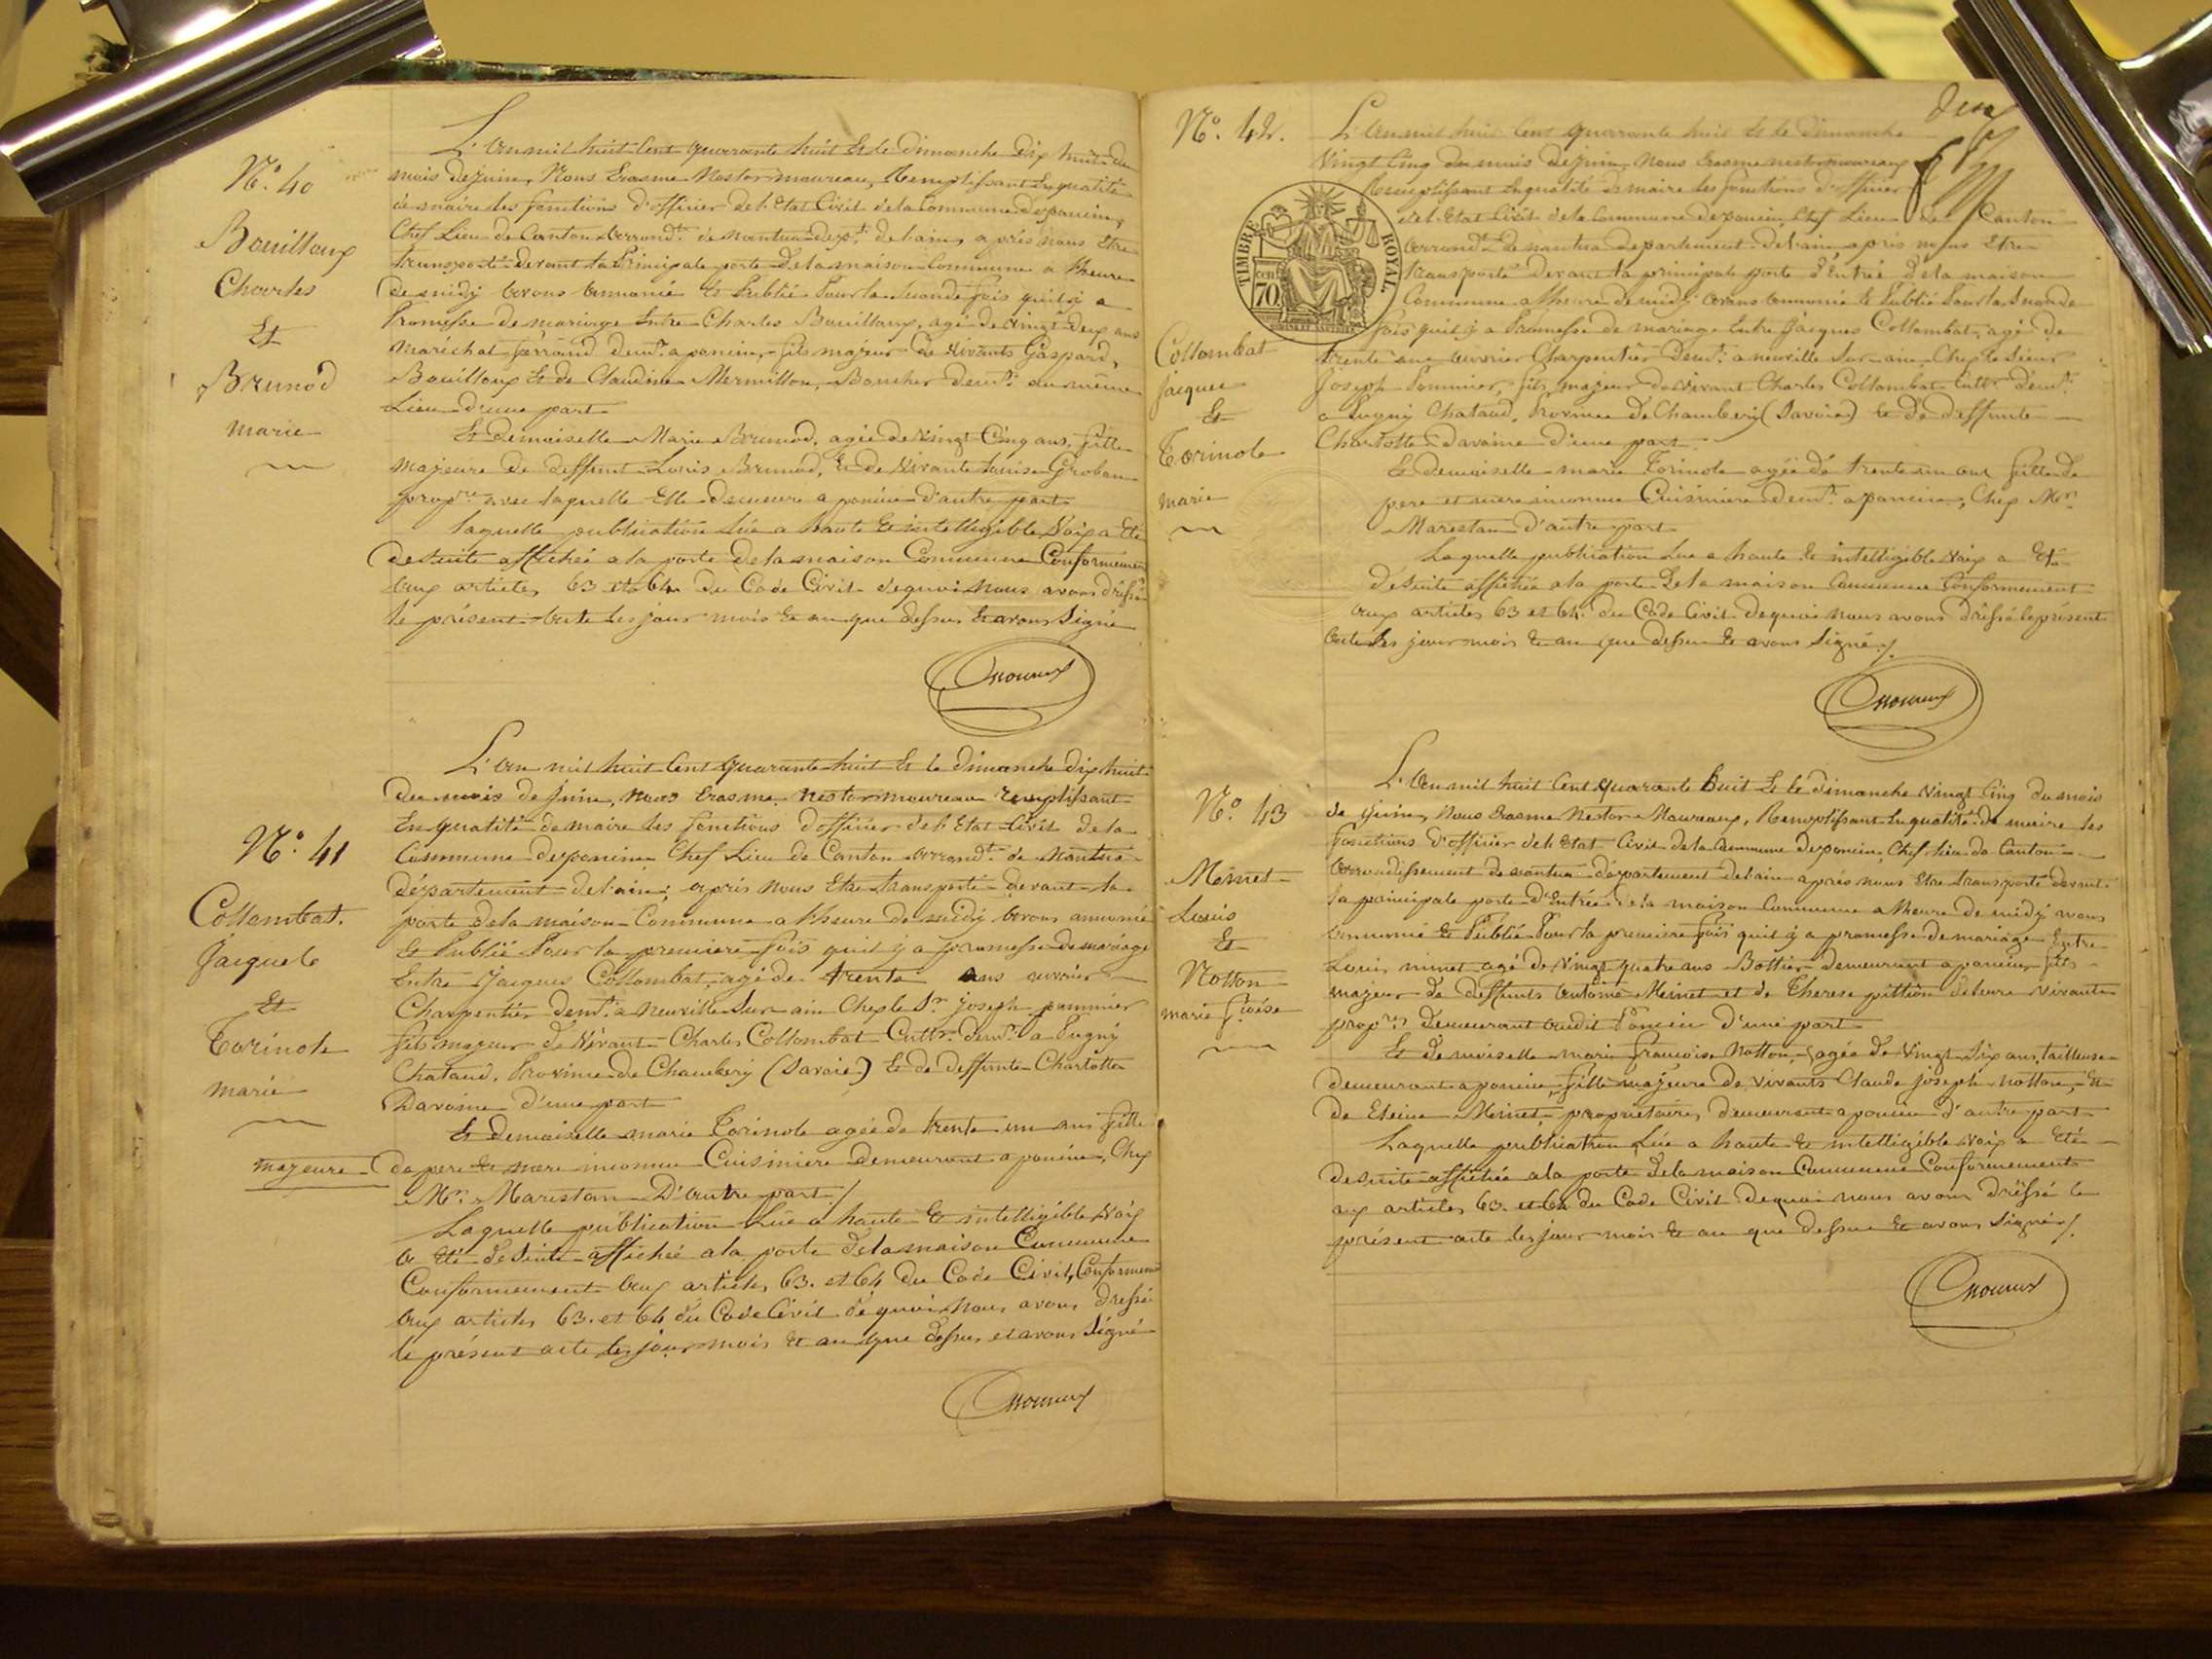 N.º 40
Bouilloux
Charles
Et
Brunod
marie
L'an mil huit Cent quarante huit Et le dimanche dix huit du
mois de juin, Nous Erasme Nestor moureaux, Remplissant En qualité
de maire les fonctions d'officier de l'Etat Civil de la Commune de poncin,
Chef Lieu de Canton arrond.t de nantua dep.t de l'ain, après nous Etre
transporté devant la Principale porte De la maison Commune a l'heure
de midy avons annoncé Et Publié Pour la seconde fois qu'il y a
Promesse de mariage Entre Charles Bouilloux, agé de vingt deux ans
Maréchal ferrand dem.t a poncin, fils majeur de vivants Gaspard
Bouilloux Et de Claudine Mermillon, Boucher dem.t au même
Lieu d'une part
Et demoiselle Marie Brunod, agée de vingt Cinq ans, fille
majeure de deffunt Louis Brunod, Et de vivante Louise Groban
prop.re avec laquelle Elle demeure a poncin d'autre part
laquelle publication Lue a haute Et intelligible Voix a Eté
de suite affichée a la porte de la maison Commune Conformément
aux articles 63 et 64 du Code Civil de quoi Nous avons dressé
le présent acte les jour mois Et an que dessus Et avons Signé
Moureaux
N.º 41
Collombat.
Jacques
Et
Torinole
marie
L'an mil huit Cent quarante huit Et le dimanche dix huit
du mois de juin, nous Erasme Nestor moureaux remplissant
En qualité de maire les fonctions d'officier de l'Etat Civil de la
Commune de poncin Chef Lieu de Canton arrond.t de Nantua
département de l'ain; après nous Etre transporté devant la
porte de la maison Commune a l'heure de midy avons annoncé
Et Publié Pour la premiere fois qu'il y a promesse de mariage
Entre Jacques Collombat, agé de trente ans ouvrier
Charpentier dem.t a Neuville Sur ain Chez le S.r Joseph pommier
fils majeur de Vivant Charles Collombat Cult.r dem.t a Pugny
Chataud, Province de Chambery (Savoie) Et de deffunte Charlotte
Davoine d'une part
Et demoiselle marie Torinole agée de trente un ans fille
majeure de pere Et mere inconnu Cuisiniere Demeurant a poncin, Chez
M.r Marestan D'autre part /
Laquelle publication Lue a haute Et intelligible Voix
a Eté de suite affichée a la porte de la maison Commune
Conformement aux articles 63. et 64 du Code Civil, Conformement
aux articles 63. et 64 du Code Civil de quoi Nous avons dressé
le présent acte les jour mois Et an que dessus, et avons Signé
Moureaux
N.º 42.
Collombat
Jacques
Et
Torinole
marie
TIMBRE ROYAL.
cen 70
deux
L'An mil huit Cent quarante huit Et le dimanche
Vingt Cinq du mois de juin, Nous Erasme nestor moureaux
Remplissant En qualité de maire les fonctions d'officier
de l'Etat Civil de la Commune de poncin, Chef Lieu de Canton
arrond.t de nantua departement de l'ain après nous Etre
transporté Devant la principale porte d'Entrée de la maison
Commune a l'heure de midy avons annoncé Et Publié Pour la Seconde
fois qu'il y a Promesse de mariage Entre Jacques Collombat, agé de
trente ans ouvrier Charpentier Dem.t a neuville Sur ain Chez le Sieur
Joseph Pommier, fils majeur de Vivant Charles Collombat Cult.r dem.t
a Pugny Chataud, Province de Chambery (Savoie) Et de deffunte
Charlotte Davoine d'une part
Et demoiselle marie Torinole agée de trente un ans fille de
pere et mere inconnu Cuisiniere dem.t a poncin, Chez M.r
Marestan d'autre part
Laquelle publication Lue a haute Et intelligible Voix a Eté
de suite affichée a la porte de la maison Commune Conformement
aux articles 63 et 64. du Code Civil de quoi nous avons dréssé le présent
acte les jour mois Et an que dessus Et avons Signé /.
Moureaux
N.º 43
Meinet
Louis
Et
Notton
marie f.çoise
L'An mil huit Cent quarante huit Et le dimanche Vingt Cinq du mois
de juin, Nous Erasme Nestor Moureaux, Remplissant En qualité de maire les
fonctions d'officier de l'Etat Civil de la Commune de poncin, Chef lieu de Canton
arrondissement de nantua département de l'ain après nous Etre transporté devant
la principale porte d'Entrée de la maison Commune a l'heure de midy avons
annoncé Et Publié Pour la premiere fois qu'il y a promesse de mariage Entre
Louis minet agé de Vingt quatre ans Bottier demeurant a poncin, fils
majeur de deffunts antoine Meinet et de Therese pittion de leurs vivants
prop.res demeurant audit Poncin d'une part
Et demoiselle marie francoise Notton, agée de Vingt Six ans, tailleuse
demeurante a poncin fille majeure de vivants Claude joseph notton, Et
de Meinet, proprietaires demeurant a poncin d'autre part
Laquelle publication Lue a haute Et intelligible Voix a Eté
de suite affichée a la porte de la maison Commune Conformement
aux articles 63. et 64 du Code Civil de quoi nous avons dréssé le
présent acte les jour mois Et an que dessus Et avons Signé /.
Moureaux